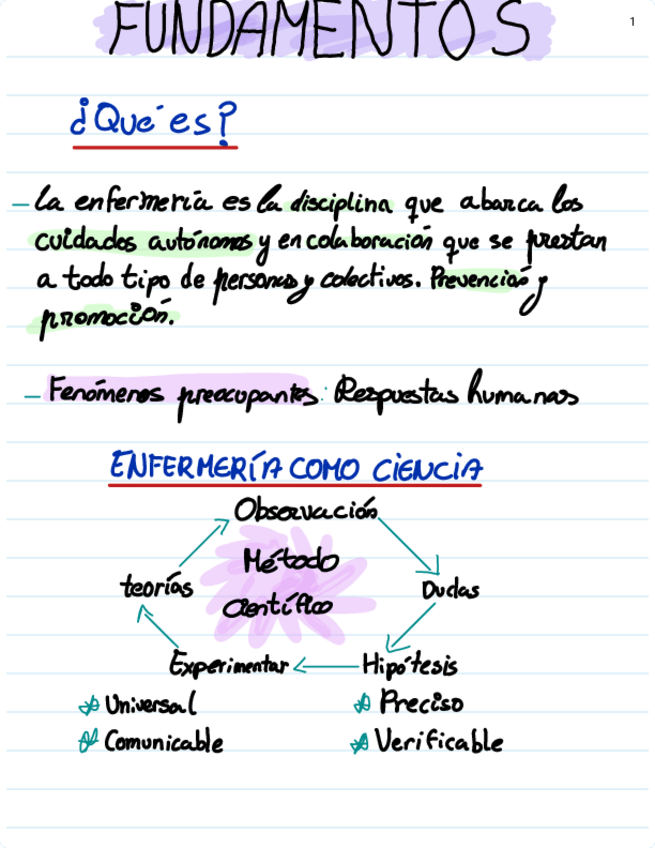 FUNDAMENTOS
1
¿Qué es?
- La enfermería es la disciplina que abarca los
cuidados autónomos y en colaboración que se prestan
a todo tipo de personas y colectivos. Prevención y
promoción.
- Fenómenos preocupantes: Respuestas humanas
ENFERMERÍA COMO CIENCIA
Observación
Método
teorías
Dudas
Científico
Experimentar
Hipótesis
* Universal
* Preciso
* Comunicable
* Verificable